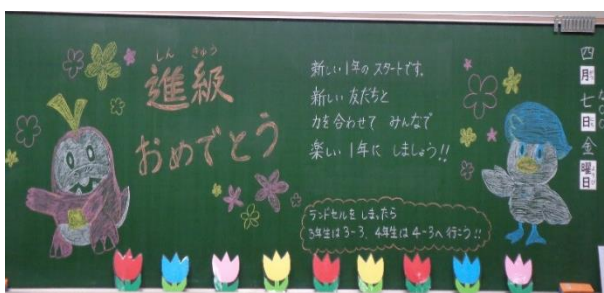 しんきゅう
進級
おめでとう
新しい1年のスタートです。
新しい友だちと
力を合わせて みんなで
楽しい1年に しましょう!!
ランドセルを しまったら
3年生は3-3、4年生は4-3へ行こう!!
四月七日金曜日